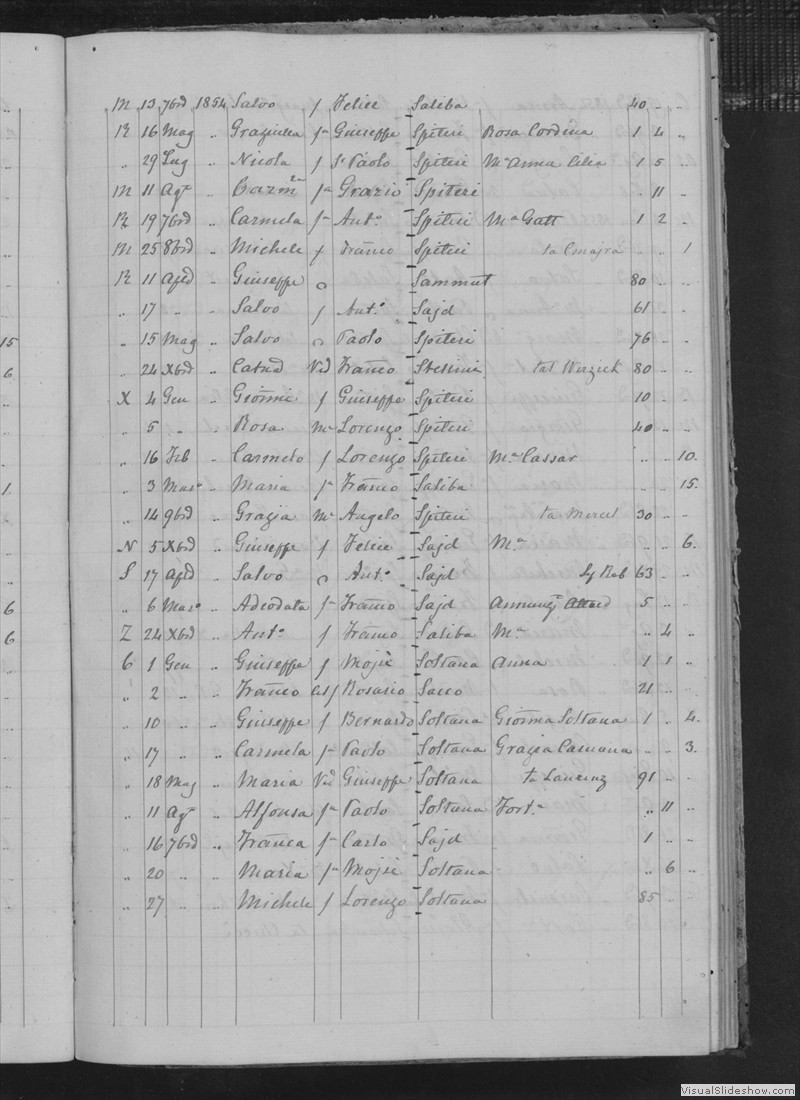 M 13 7bre 1854 Salvo f Felice Saliba 40 .. ..
R 16 Mag .. Graziulla fa Giuseppe Spiteri Rosa Cordina 1 4 ..
.. 29 Lug .. Nicola f Sr Paolo Spiteri Ma Anna Cilia 1 5 ..
M 11 Ago .. fa Grazio Spiteri .. 11 ..
R 19 7bre .. Carmela fa Anto Spiteri Ma Gatt 1 2 ..
M 25 8bre .. Michele f Franco Spiteri ta Cmajra .. .. 1
R 11 Aple .. Giuseppe o Sammut 80 .. ..
.. 17 .. .. Salvo f Anto Sajd 61 .. ..
.. 15 Mag .. Salvo o Paolo Spiteri 76 .. ..
.. 24 Xbre .. Catna Ved Franco tal Werziek 80 .. ..
X 4 Gen .. Gioanni f Giuseppe Spiteri 10 .. ..
.. 5 .. .. Rosa Me Lorenzo Spiteri 40 .. ..
.. 16 Feb .. Carmelo f Lorenzo Spiteri Ma Cassar .. .. 10.
.. 3 Maro .. Maria fa Franco Saliba .. .. 15.
.. 14 9bre .. Grazia Me Angelo Spiteri ta Mercel 30 .. ..
N 5 Xbre .. Giuseppe f Felice Sajd Ma .. .. 6.
S 17 Aple .. Salvo o Anto Sajd 63 .. ..
.. 6 Maro .. Adeodata fa Franco Sajd Annunz. Attard 5 .. ..
Z 24 Xbre .. Anto f Franco Saliba Ma .. 4 ..
C 1 Gen .. Giuseppe f Mojsè Soltana Anna 1 1 ..
.. 2 .. .. Franco f Rosario Sacco 21 .. ..
.. 10 .. Giuseppe f Bernardo Soltana Gioanna Soltana 1 .. 4.
.. 17 .. .. Carmela fa Paolo Soltana Grazia Camana .. .. 3.
.. 18 Mag .. Maria Vd Giuseppe Soltana ta Laurenz 91 .. ..
.. 11 Ago .. Alfonsa fa Paolo Soltana Forta .. 11 ..
.. 16 7bre .. Franca fa Carlo Sajd 1 .. ..
.. 20 .. .. Maria fa Mojsè Soltana .. 6 ..
.. 27 .. .. Michele f Lorenzo Soltana 85 .. ..
15
6
1
6
6
VisualSlideshow.com